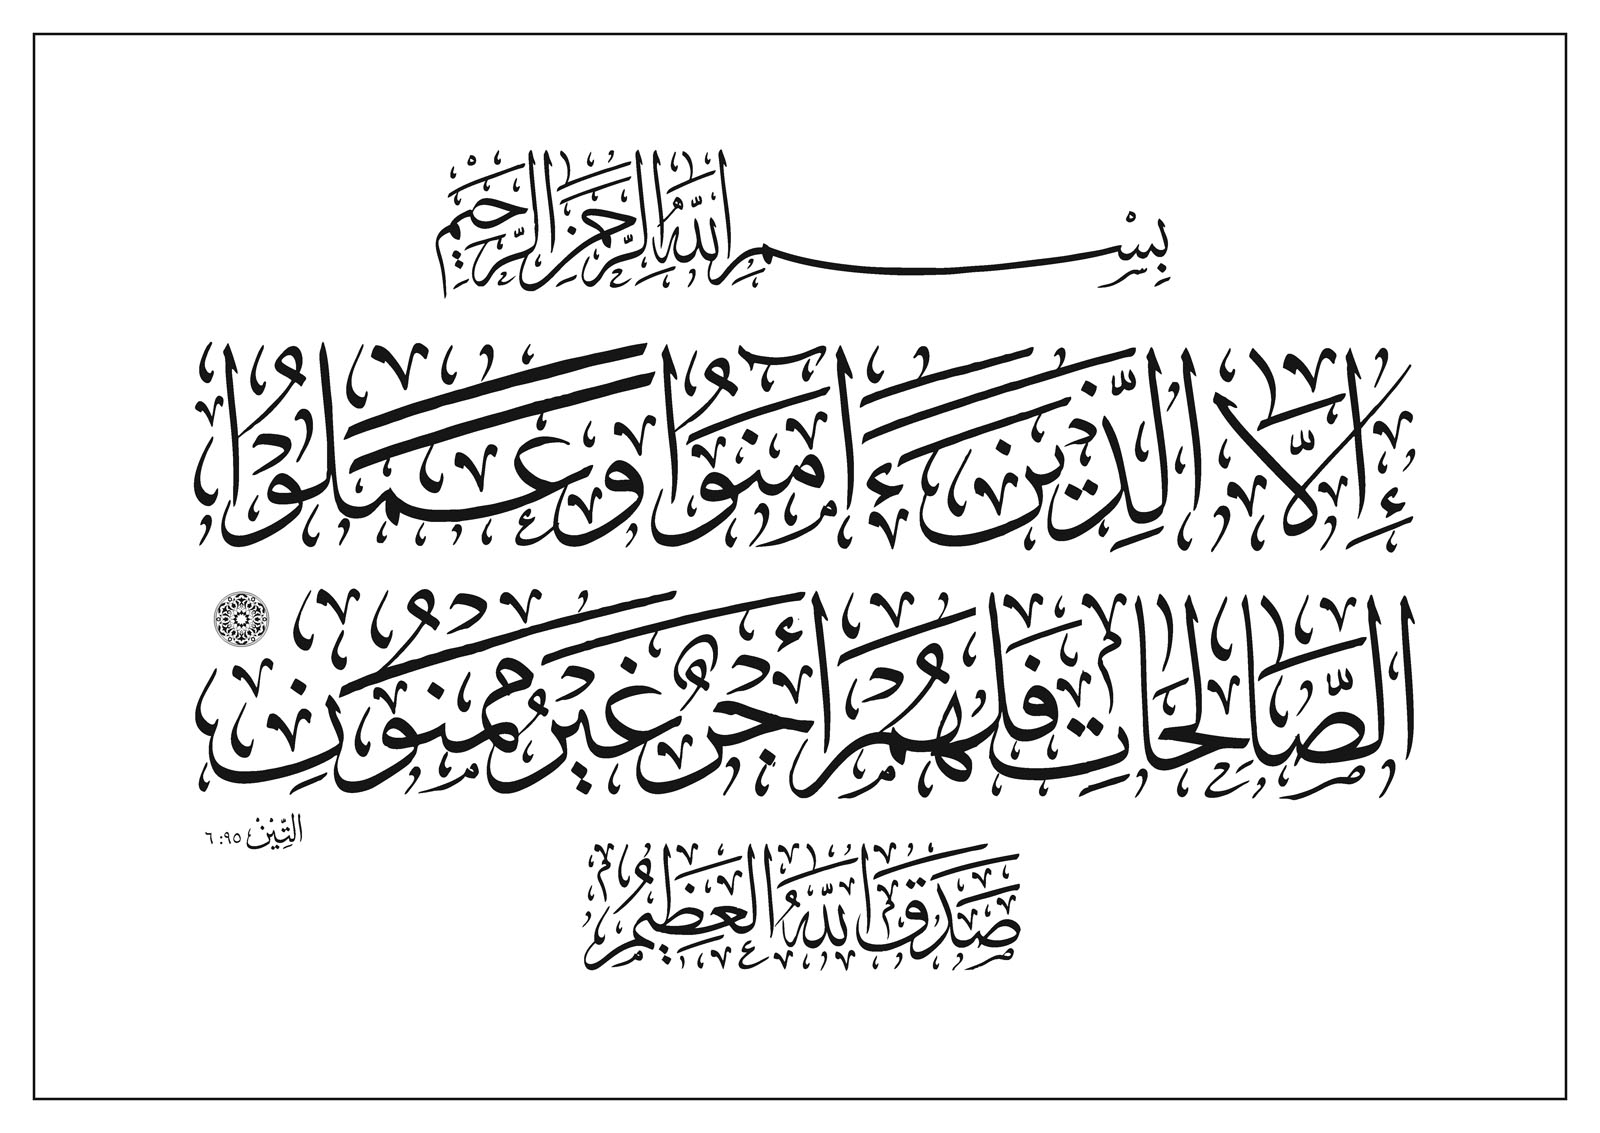 بِسْمِ اللَّهِ الرَّحْمَنِ الرَّحِيْمِ
إِلَّا الَّذِيْنَ ءَامَنُوْا وَعَمَلُوْا
الصَّالِحَاتِ فَلَهُمْ أَجْرٌ غَيْرُ مَمْنُوْنِ
التِّيْنْ ٩٥: ٦
صَدَقَ اللَّهُ الْعَظِيْمُ